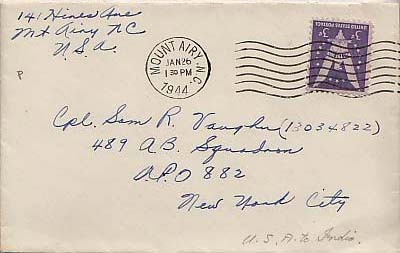 141 Hines Ave
Mt Airy NC
U.S.A.
P
MOUNT AIRY, N.C.
JAN 26
1 30 PM
1944
UNITED STATES POSTAGE
3¢ 3¢
Cpl. Sam R. Vaughn (13034822)
489 A.B. Squadron
A.P.O 882
New York City
U.S.A. to India.